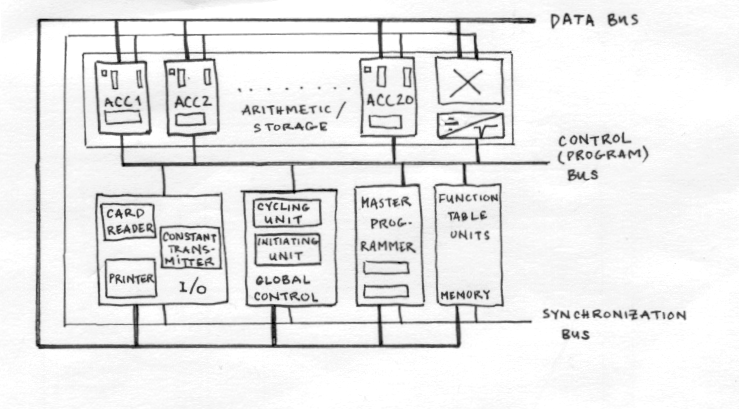 DATA BUS
ACC1
ACC2
ACC20
ARITHMETIC/
STORAGE
CONTROL
(PROGRAM)
BUS
CARD
READER
CONSTANT
TRANS-
MITTER
PRINTER
I/O
CYCLING
UNIT
INITIATING
UNIT
GLOBAL
CONTROL
MASTER
PROG-
RAMMER
FUNCTION
TABLE
UNITS
MEMORY
SYNCHRONIZATION
BUS